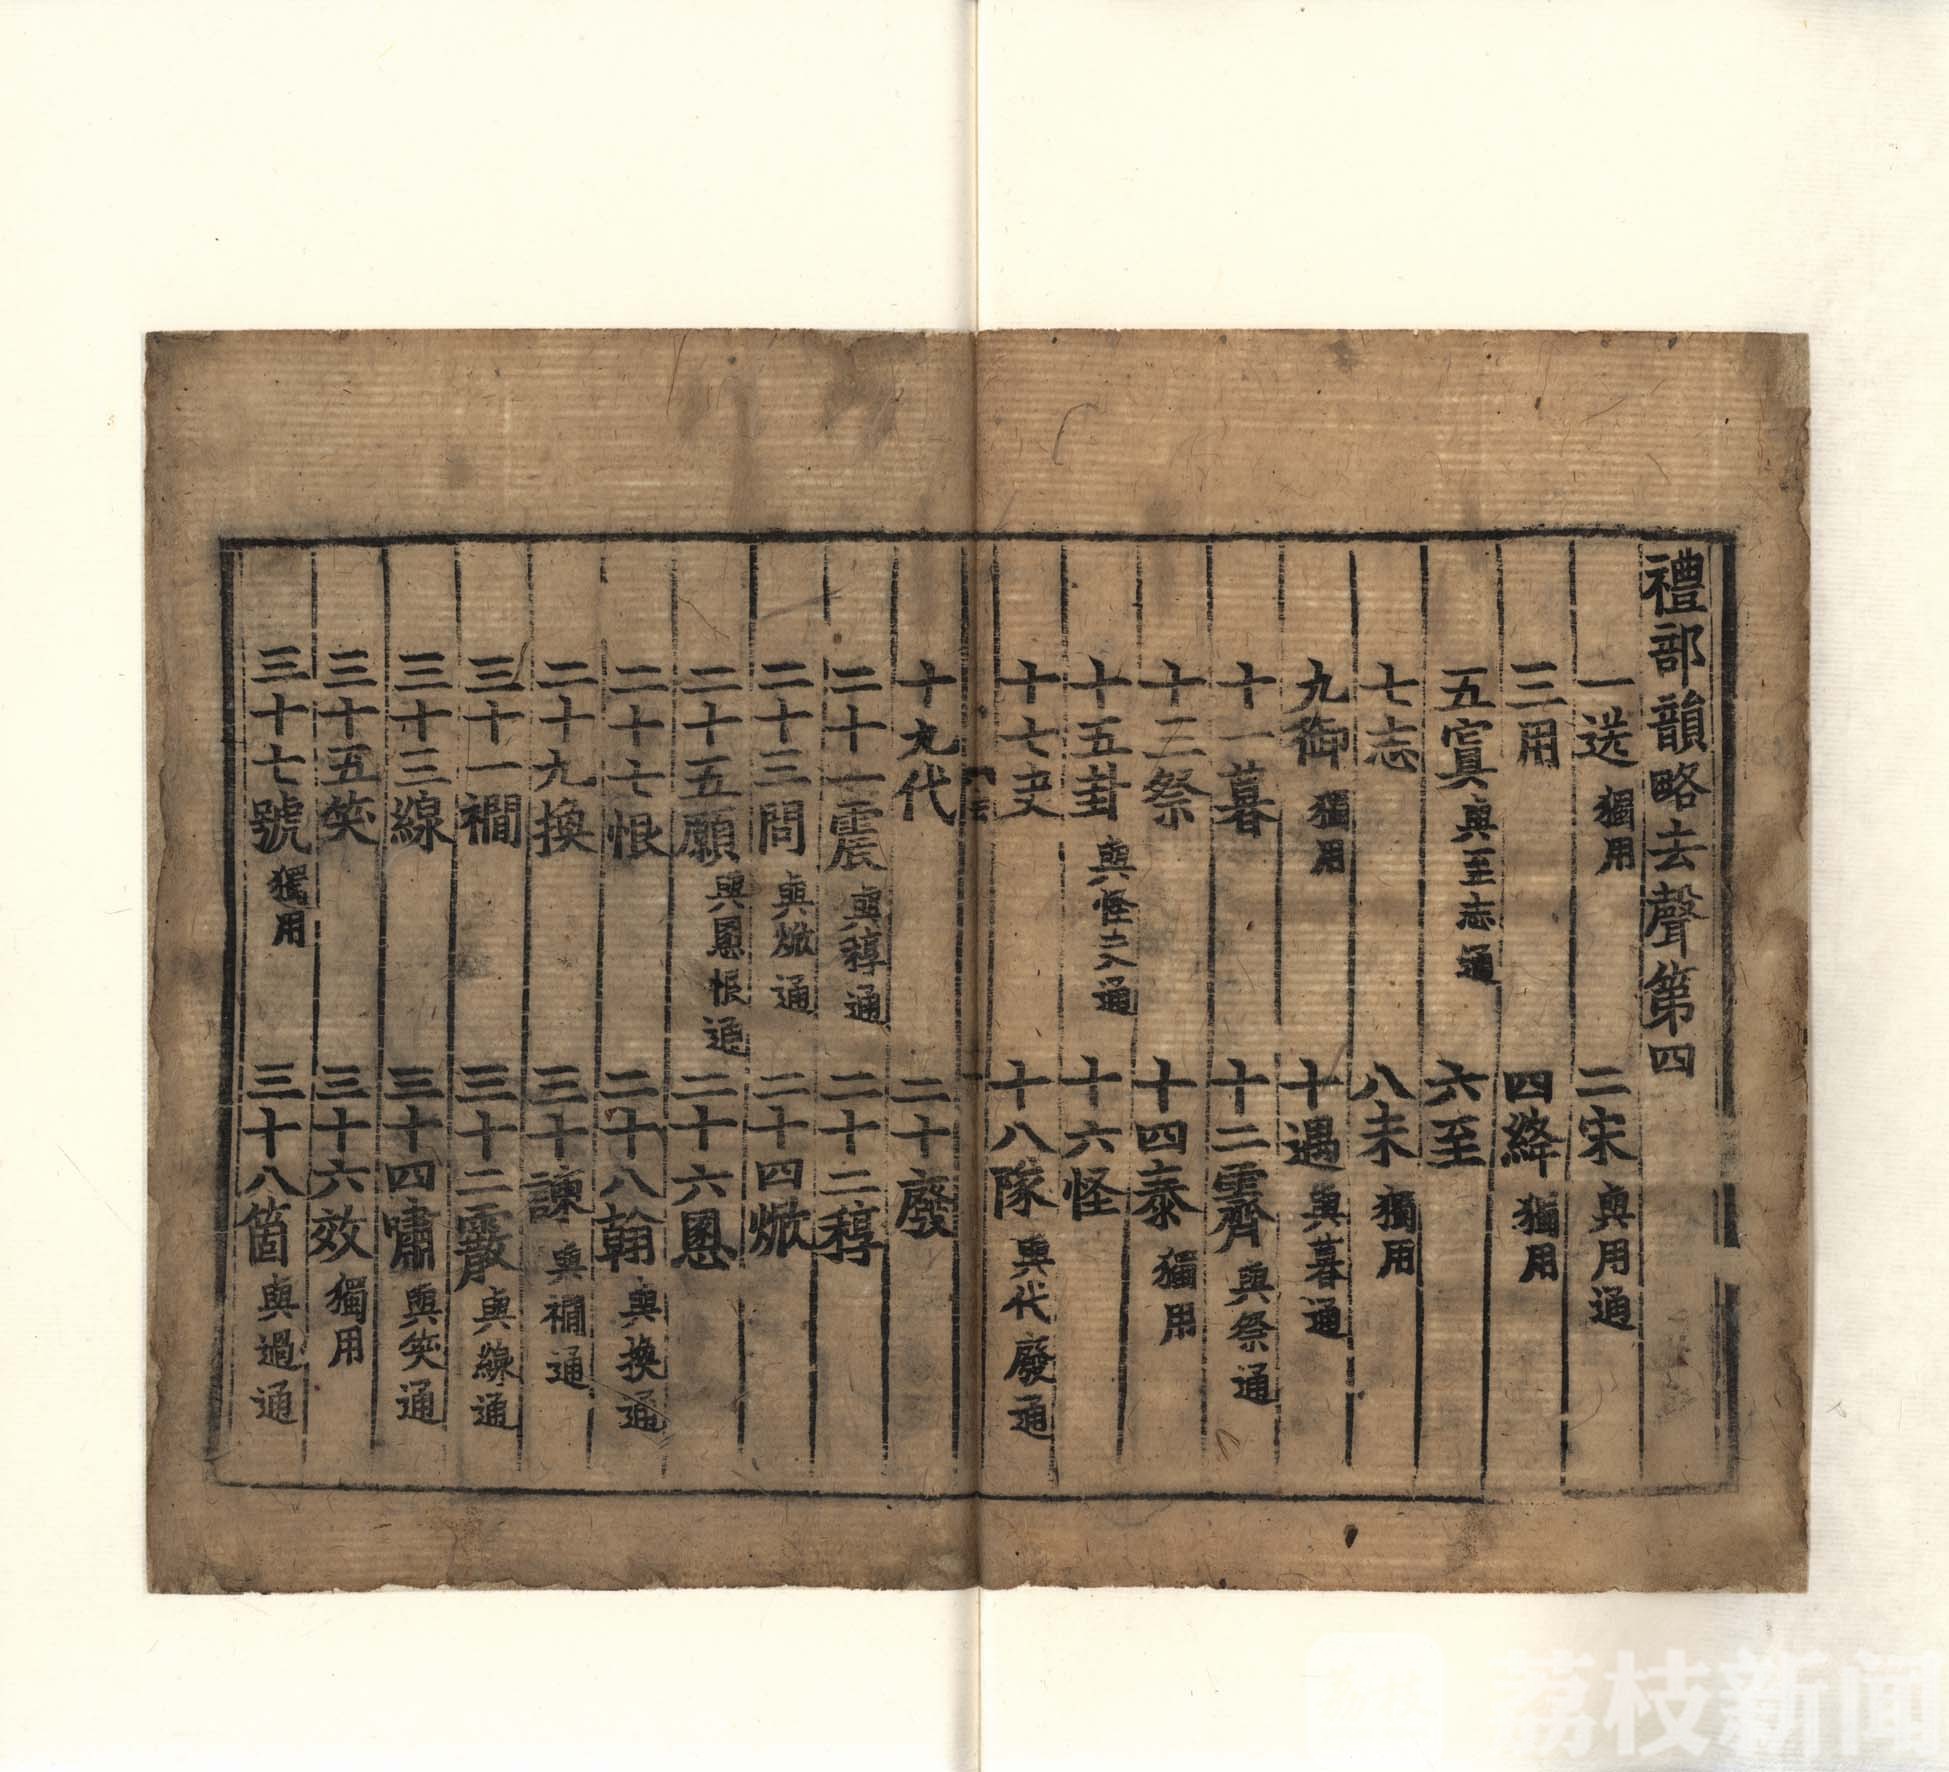 禮部韻略去聲第四
一送獨用 二宋與用通
三用 四絳獨用
五寘與至志通 六至
七志 八未獨用
九御獨用 十遇與暮通
十一暮 十二霽與祭通
十三祭 十四泰獨用
十五卦與怪夬通 十六怪
十七夬 十八隊與代廢通
十九代 二十廢
二十一震與稕通 二十二稕
二十三問與焮通 二十四焮
二十五願與慁恨通 二十六慁
二十七恨 二十八翰與換通
二十九換 三十諫與襇通
三十一襇 三十二霰與線通
三十三線 三十四嘯與笑通
三十五笑 三十六效獨用
三十七號獨用 三十八箇與過通
荔枝新闻